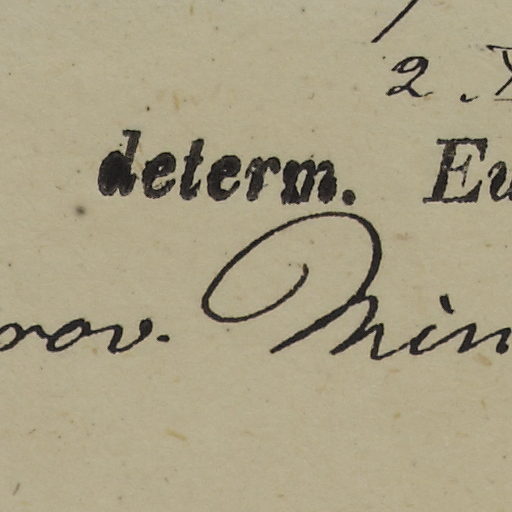 2. X
determ. Eu
rov. Min